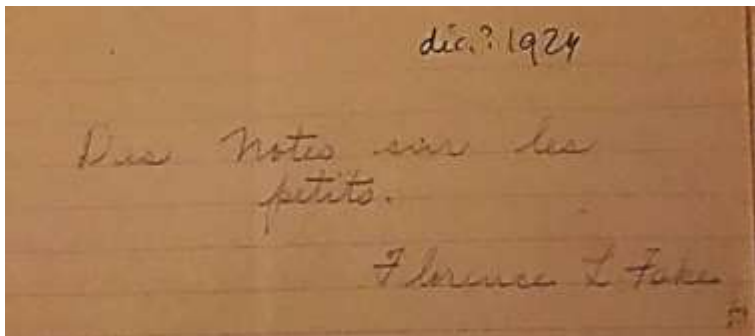 dec.? 1924
Des Notes sur les
petits.
Florence L Fake